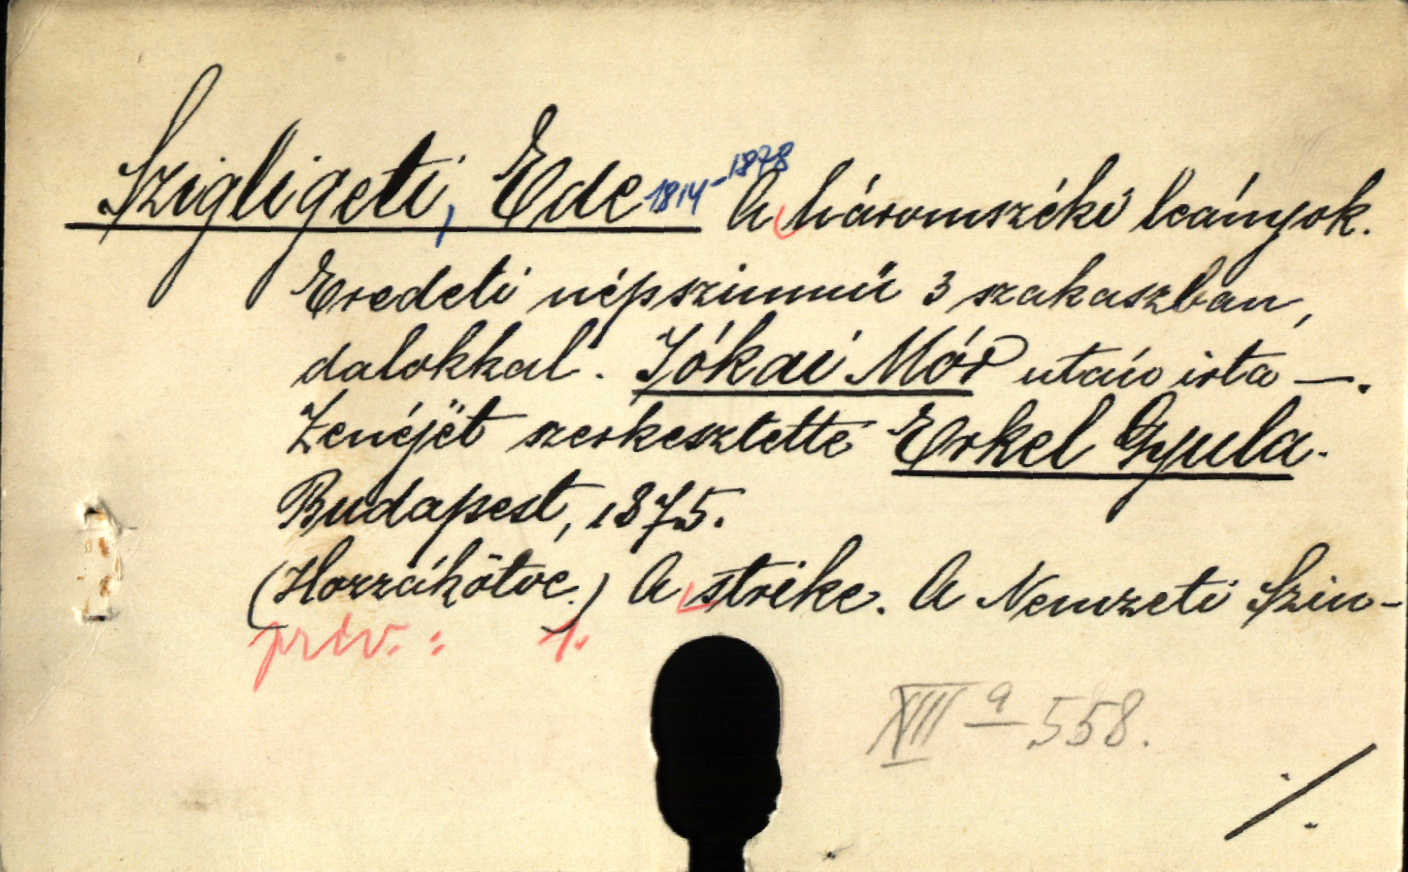 Szigligeti, Ede 1814-1878 A háromszéki leányok.
Eredeti népszinmű 3 szakaszban,
dalokkal. Jókai Mór után irta —.
Zenéjét szerkesztette Erkel Gyula.
Budapest, 1875.
(Hozzákötve.) A strike. A Nemzeti Szin-
priv.: 1.
XIII a 558.
./.